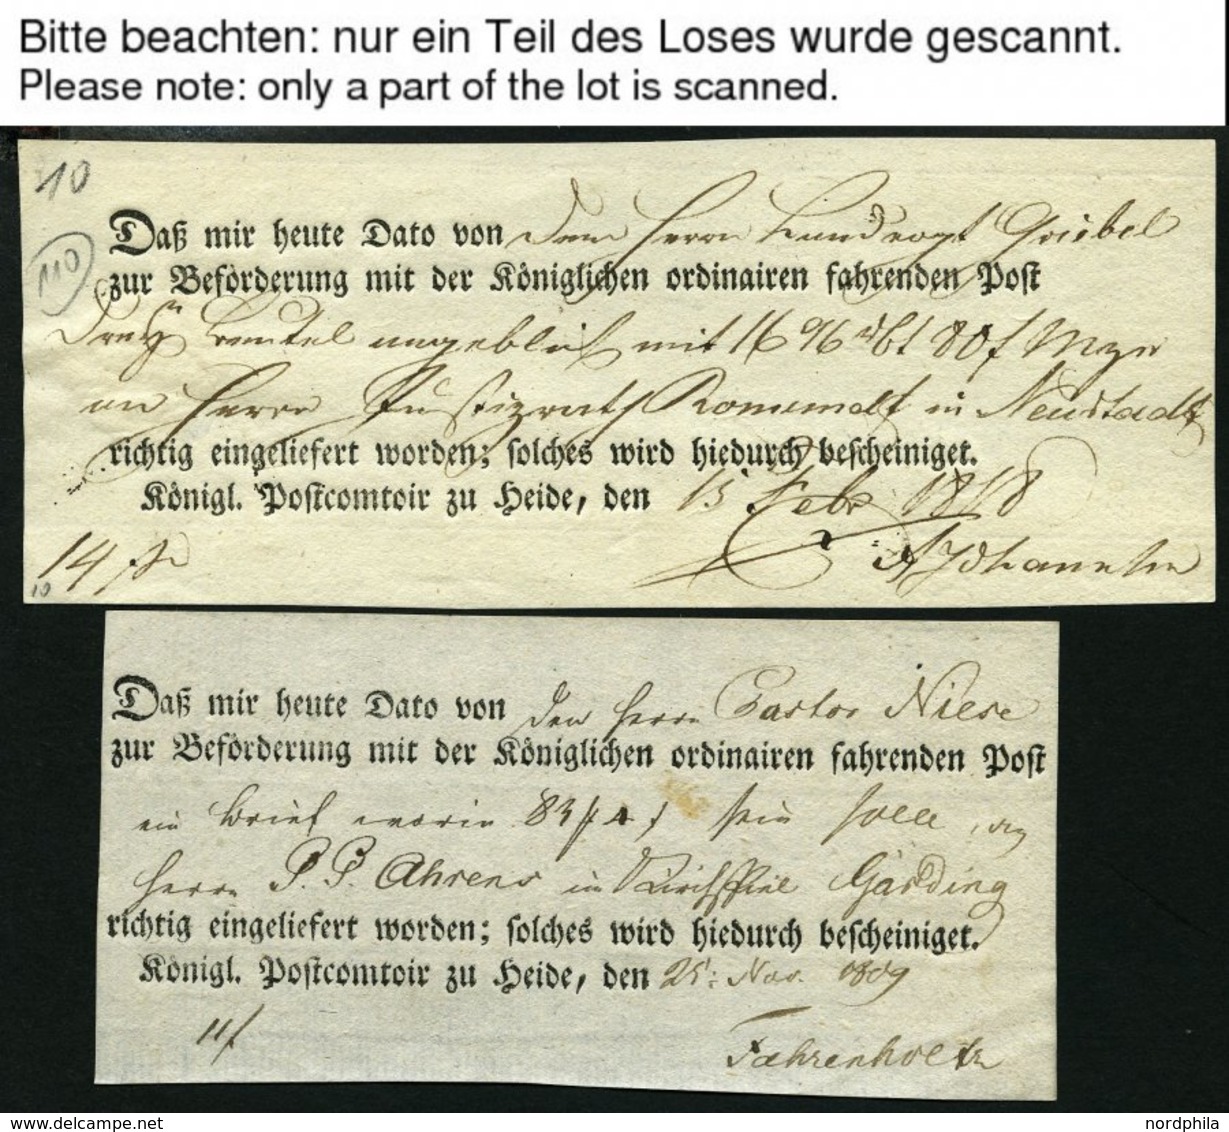 Bitte beachten: nur ein Teil des Loses wurde gescannt.
Please note: only a part of the lot is scanned.
10
110
Daß mir heute Dato von dem Herrn Landvogt Griebel
zur Beförderung mit der Königlichen ordinairen fahrenden Post
Beutel angeblich mit 16 96 rbt 80 f
an Herrn Justizrath Romundt in Neustadt
richtig eingeliefert worden; solches wird hiedurch bescheiniget.
Königl. Postcomtoir zu Heide, den 15 Febr 1818
14
10
Daß mir heute Dato von dem Herrn Pastor Niese
zur Beförderung mit der Königlichen ordinairen fahrenden Post
ein Brief worin 83 sein solle, an
Herrn P. P. Ahrens in Kirchspiel Garding
richtig eingeliefert worden; solches wird hiedurch bescheiniget.
Königl. Postcomtoir zu Heide, den 25: Nov. 1809
11
Fahrenholtz
www.delcampe.net
nordphila